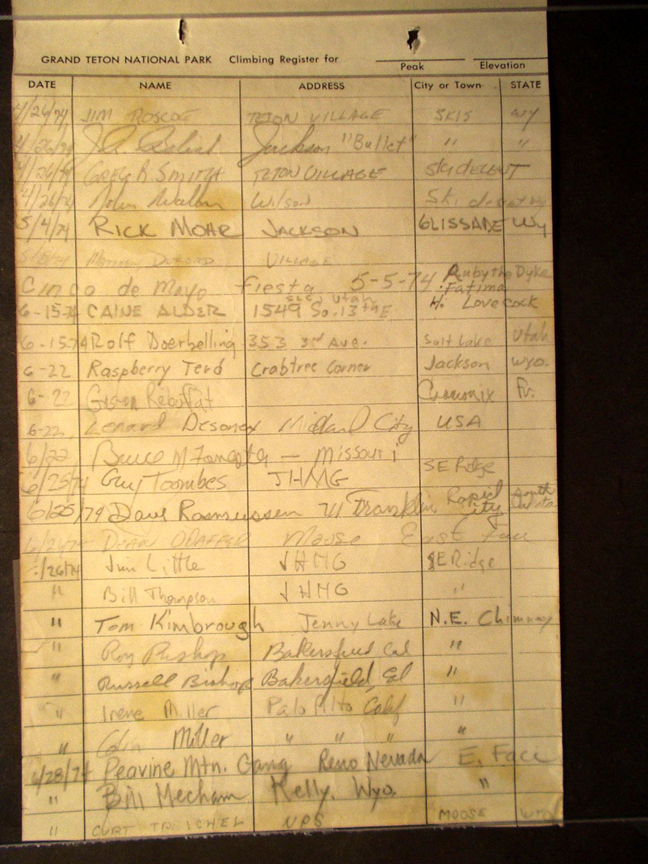 GRAND TETON NATIONAL PARK Climbing Register for
Peak Elevation
DATE NAME ADDRESS City or Town STATE
4/26/74 JIM ROSCOE TETON VILLAGE SKIS WY
4/26/74 Jackson "Bullet" " "
4/26/74 GREG R SMITH TETON VILLAGE SKI DECENT
4/26/74 John Wilson Ski
5/4/74 RICK MOHR JACKSON GLISSADE WY
VILLAGE
Cinco de Mayo Fiesta 5-5-74 Ruby the Dyke
Fatima
SLC, Utah H. Lovecock
6-15-74 CAINE ALDER 1549 So. 13th E
6-15-74 Rolf Doerbelling 353 3rd Ave. Salt Lake Utah
6-22 Raspberry Terd Crabtree Corner Jackson Wyo.
6-22 Chamonix Fr.
6-22 Lenard Desonex Midland City USA
6/22 Bruce M — Missouri
6/25/74 Guy Toombes JHMG SE Ridge
6/25/74 Dave Rasmussen Franklin Rapid City South Dakota
Moose East Face
6/26/74 Jim Little JHMG SE Ridge
" Bill Thompson JHMG "
" Tom Kimbrough Jenny Lake N.E. Chimney
" Roy Bishop Bakersfield Cal "
" Russell Bishop Bakersfield, Cal "
" Irene Miller Palo Alto Calif "
" Colin Miller " " " "
6/28/74 Peavine Mtn. Gang Reno Nevada E. Face
" Bill Mecham Kelly, Wyo. "
" CURT NPS MOOSE WYO